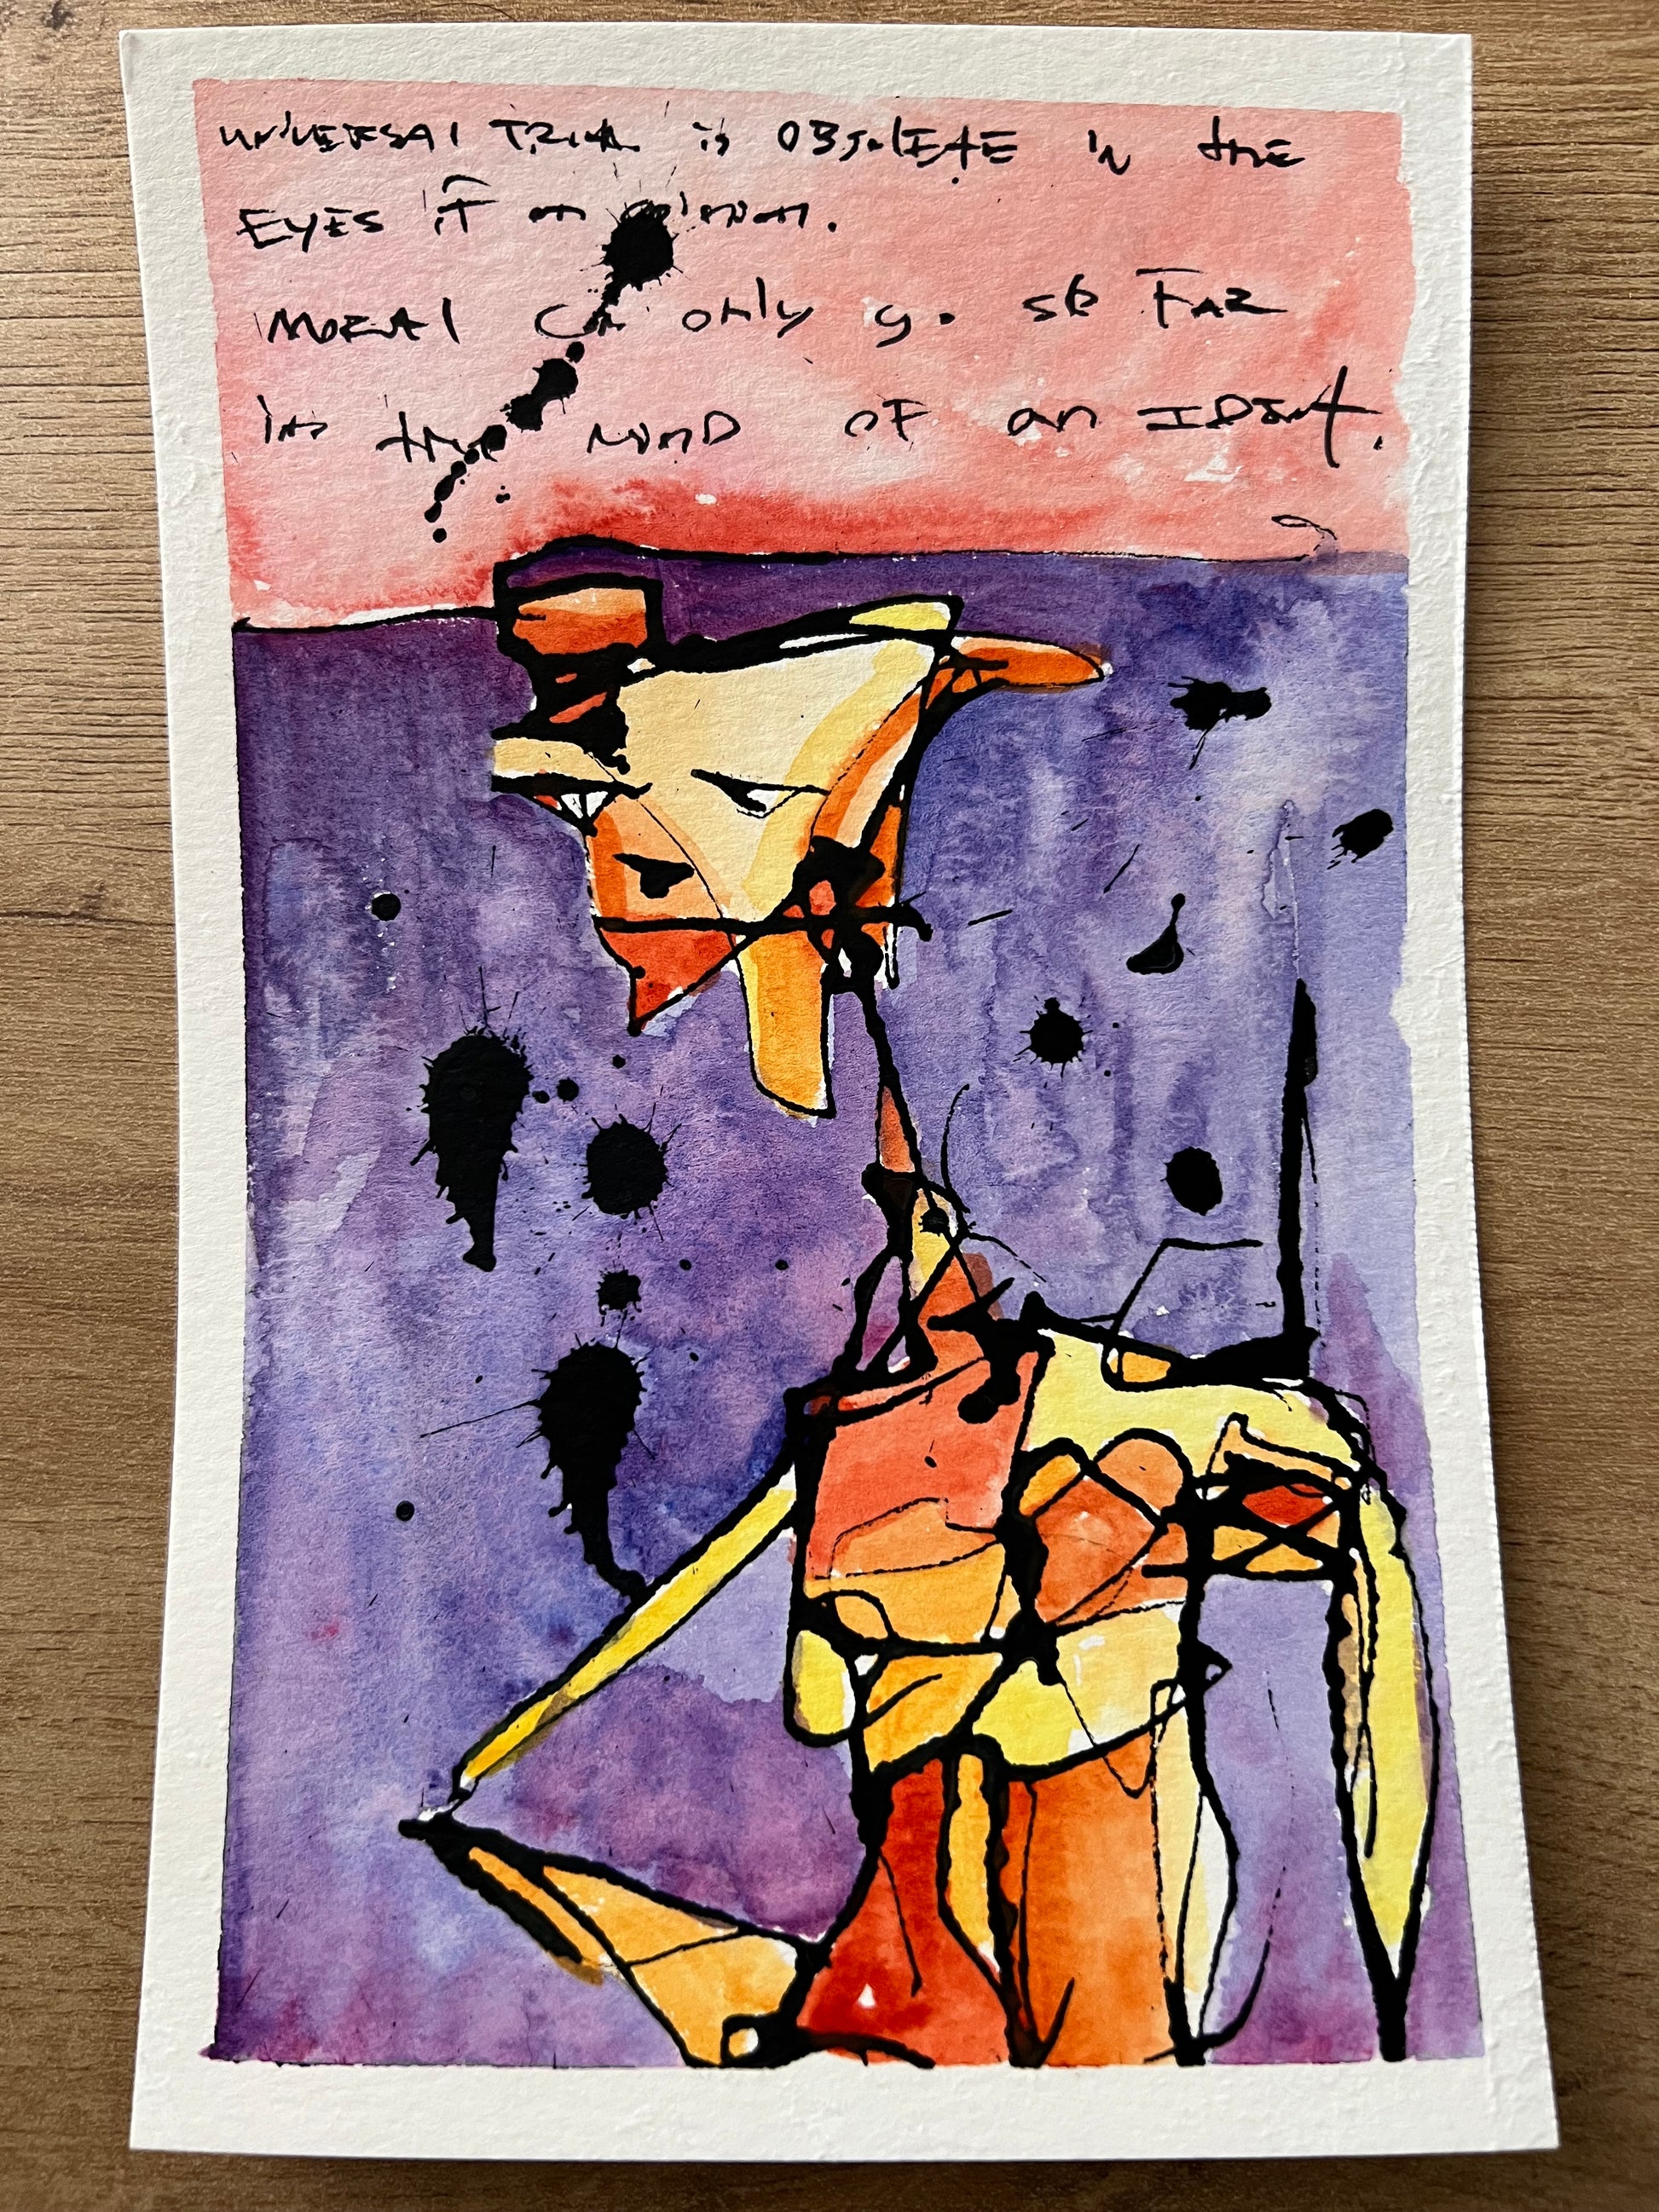 UNIVERSAL TRIAL is OBSOLEATE in the
EYES if an opinion.
MORAL can only go so FAR
in the MIND OF an IDIOT.